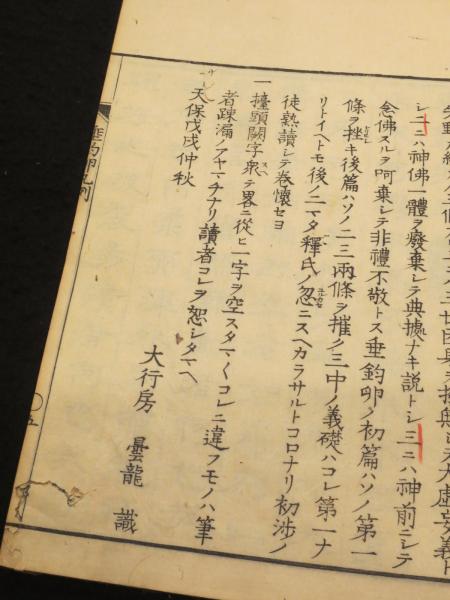 シ二ニハ神佛一體ヲ廢棄シテ典據ナキ説トシ三ニハ神前ニシテ
念佛スルヲ呵棄シテ非禮不敬トス垂鈎卵ノ初篇ハソノ第一
條ヲ挫キ後篇ハソノ二三兩條ヲ摧ク三中ノ義礎ハコレ第一ナ
リトイヘトモ後ノ二マタ釋氏ノ忽ニスヘカラサルトコロナリ初渉ノ
徒熟讀シテ巻懷セヨ
一擡頭闕字衆スヘテ畧ニ從ヒ一字ヲ空スタマ〱コレニ違フモノハ筆
者踈漏ノアヤマチナリ讀者コレヲ恕シタマヘ
天保戊戌仲秋
大行房 曇龍 識
五